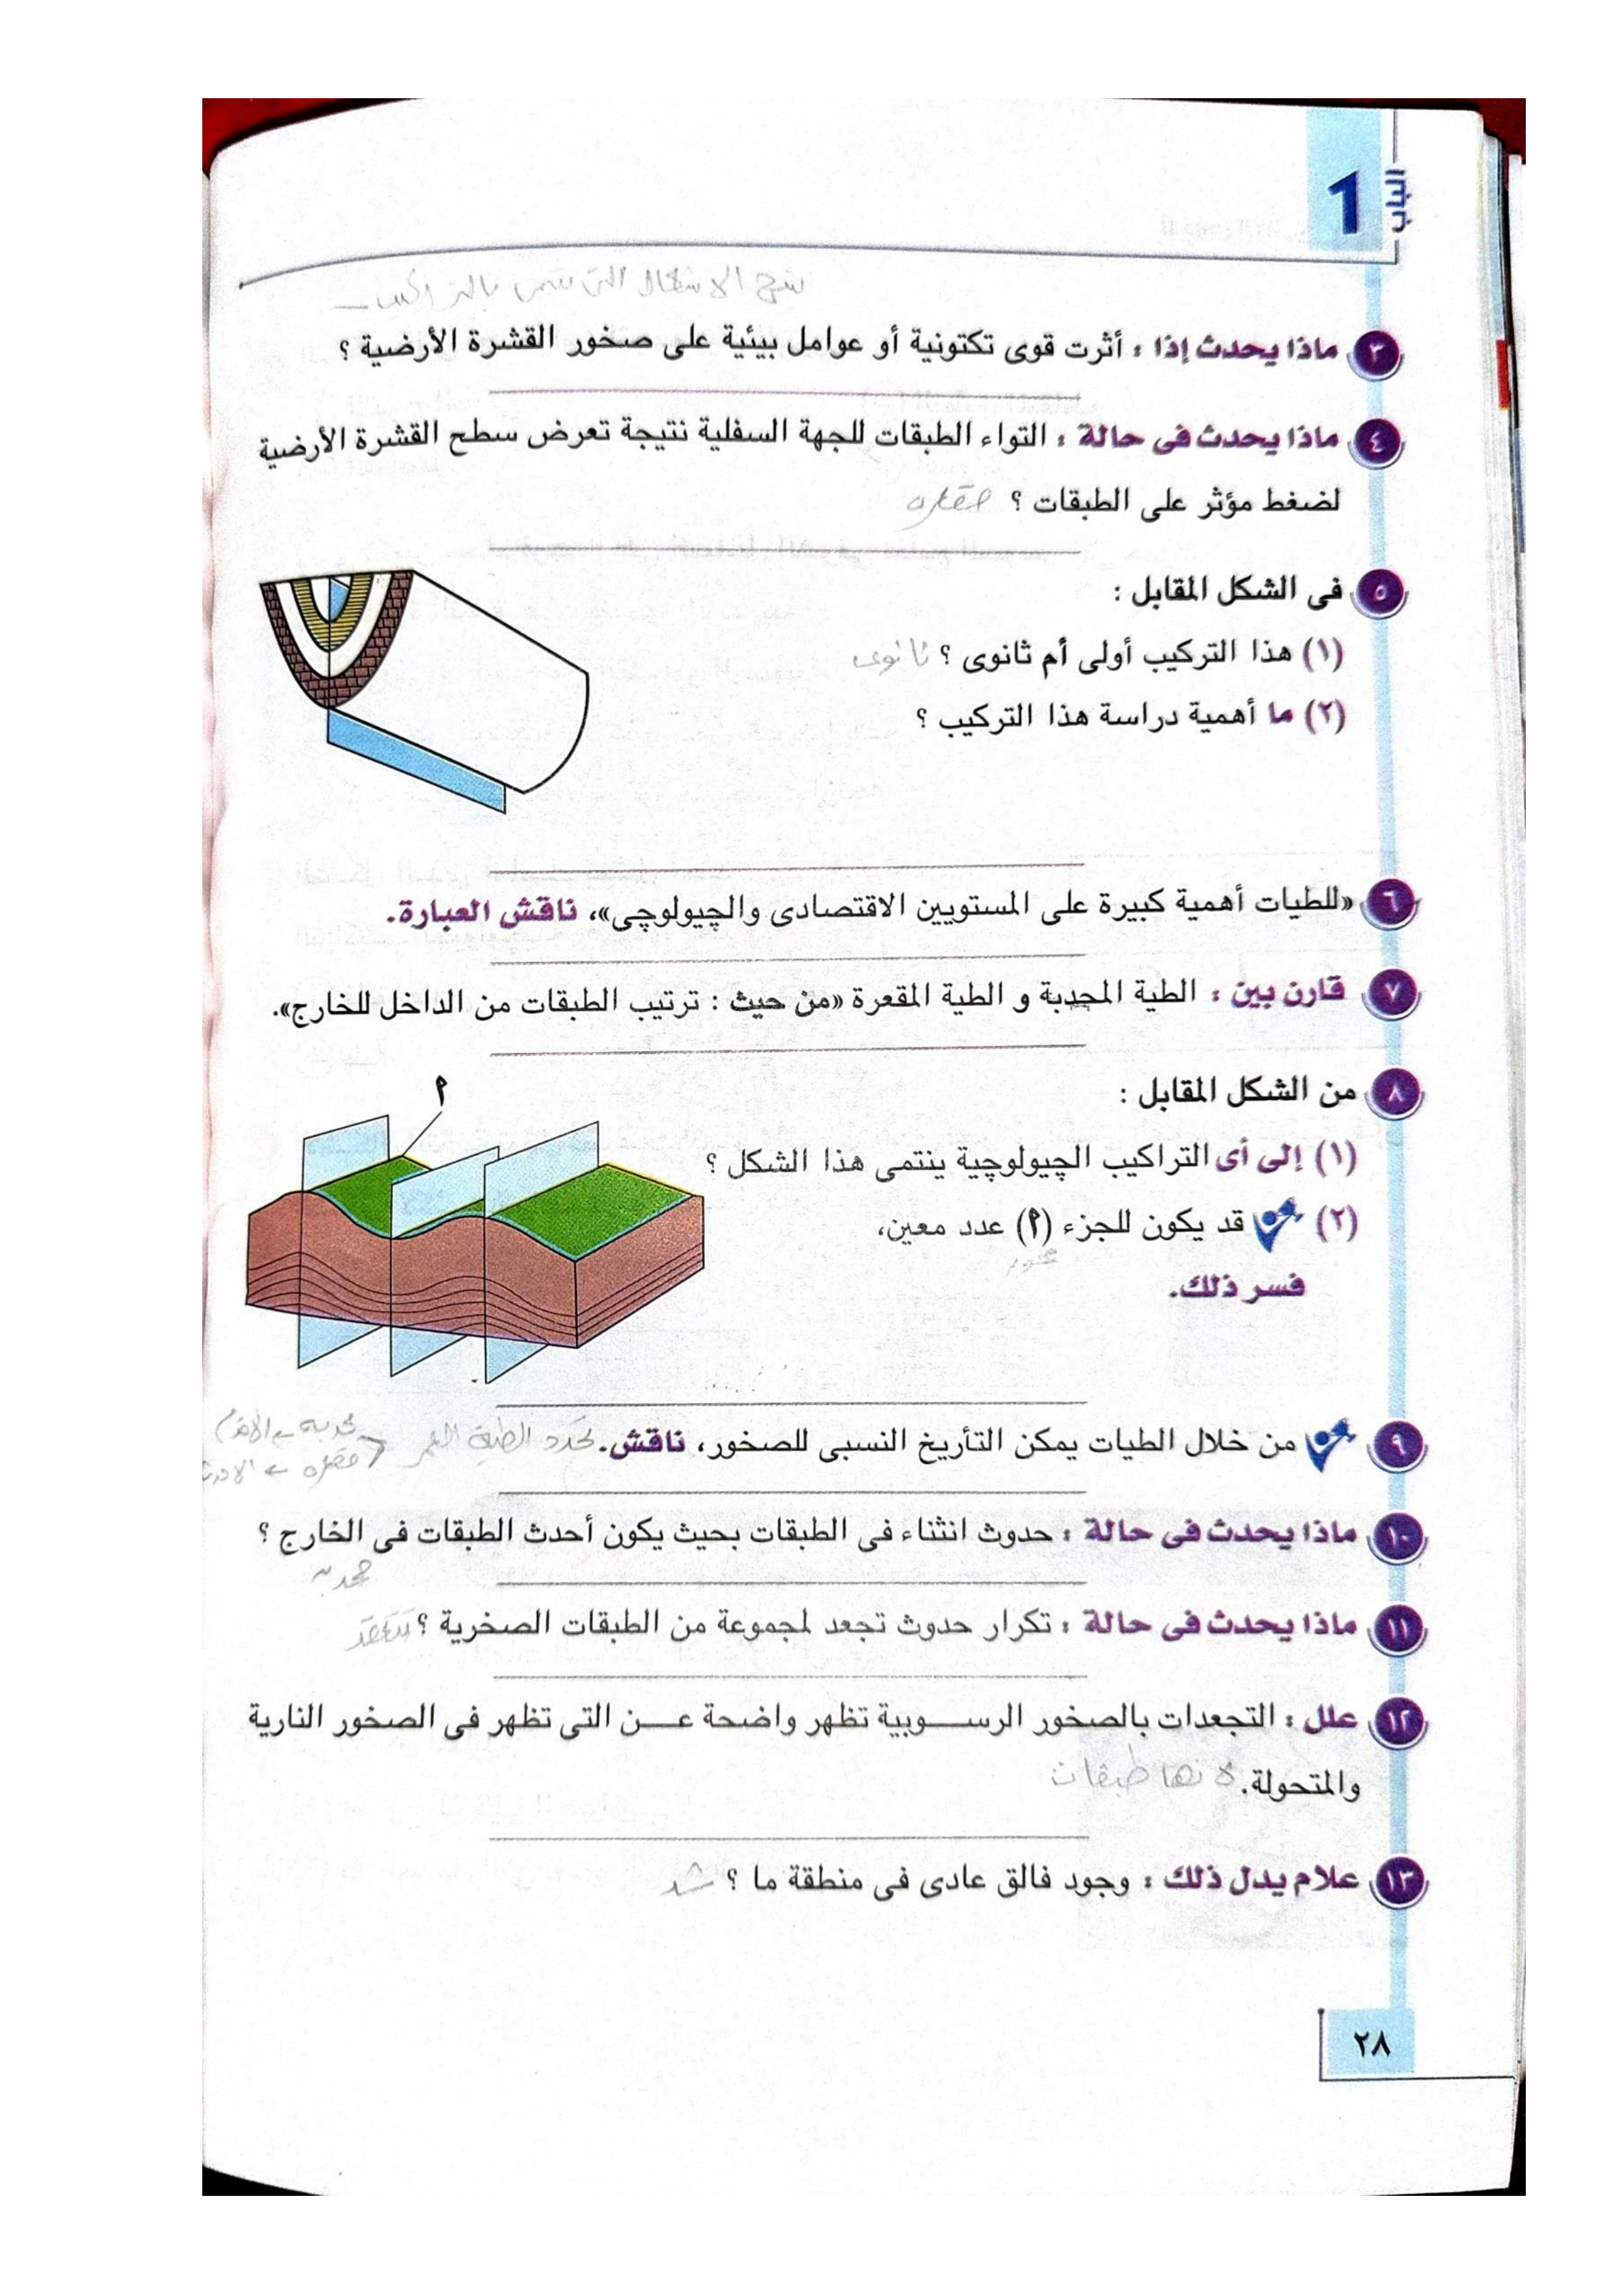 الباب
1
٣ ماذا يحدث إذا : أثرت قوى تكتونية أو عوامل بيئية على صخور القشرة الأرضية ؟
٤ ماذا يحدث فى حالة : التواء الطبقات للجهة السفلية نتيجة تعرض سطح القشرة الأرضية
لضغط مؤثر على الطبقات ؟ مقعره
٥ فى الشكل المقابل :
(١) هذا التركيب أولى أم ثانوى ؟ ثانوى
(٢) ما أهمية دراسة هذا التركيب ؟
٦ «للطيات أهمية كبيرة على المستويين الاقتصادى والچيولوچى»، ناقش العبارة.
٧ قارن بين : الطية المحدبة و الطية المقعرة «من حيث : ترتيب الطبقات من الداخل للخارج».
٨ من الشكل المقابل :
(١) إلى أى التراكيب الچيولوچية ينتمى هذا الشكل ؟
(٢) قد يكون للجزء (٩) عدد معين،
محور
فسر ذلك.
٩
٩ من خلال الطيات يمكن التأريخ النسبى للصخور، ناقش. تحدد الطبقة العمر
محدبة ← الاقدم
مقعره ← الاحدث
١٠ ماذا يحدث فى حالة : حدوث انثناء فى الطبقات بحيث يكون أحدث الطبقات فى الخارج ؟
محدبه
١١ ماذا يحدث فى حالة : تكرار حدوث تجعد لمجموعة من الطبقات الصخرية ؟
١٢ علل : التجعدات بالصخور الرسـوبية تظهر واضحة عـن التى تظهر فى الصخور النارية
والمتحولة. لانها طبقات
١٣ علام يدل ذلك : وجود فالق عادى فى منطقة ما ؟ شد
٢٨